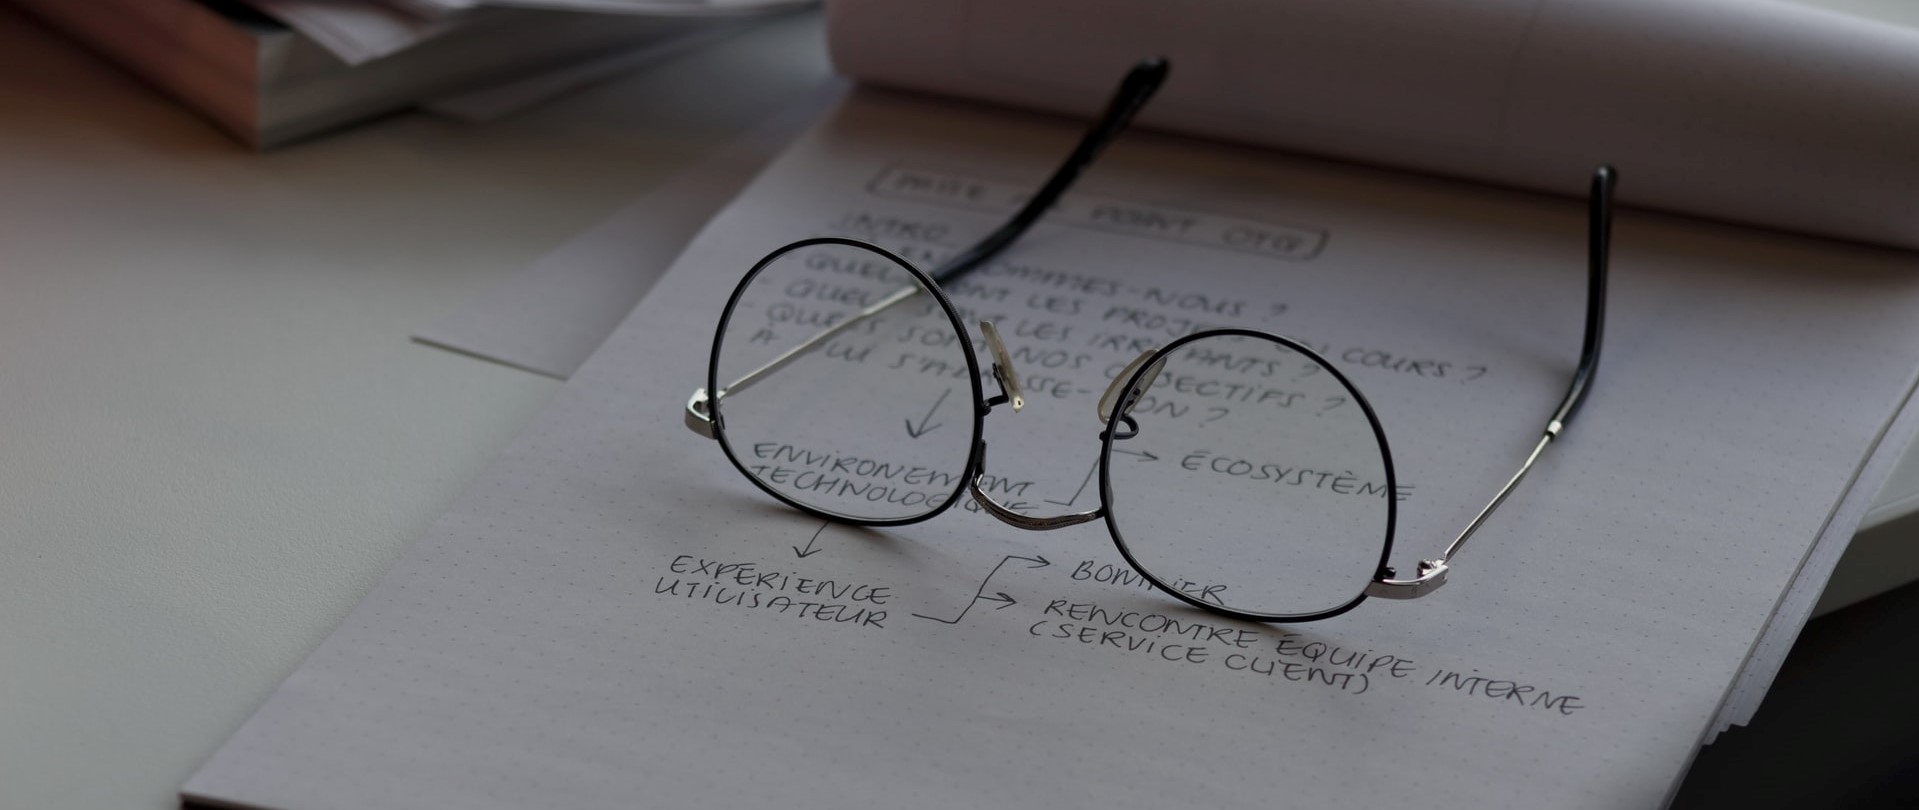 POINT OTG
INTRO
EN SOMMES-NOUS ?
QUELS SONT LES PROJETS EN COURS ?
QUELS SONT LES IRRITANTS ?
QUELS SONT NOS OBJECTIFS ?
À QUI S'ADRESSE-T-ON ?
ENVIRONEMENT
TECHNOLOGIQUE
ÉCOSYSTÈME
EXPÉRIENCE
UTILISATEUR
BONIFIER
RENCONTRE ÉQUIPE INTERNE
(SERVICE CLIENT)